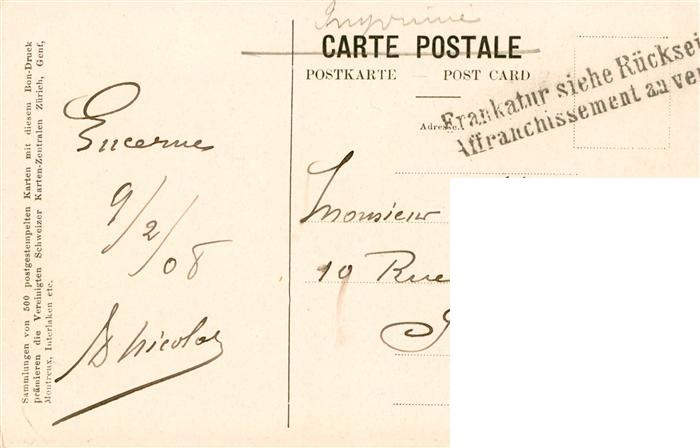 Imprimé
CARTE POSTALE
POSTKARTE — POST CARD
Frankatur siehe Rücksei
Affranchissement au ver
Adresse.
Lucerne
9/2/08
Nicolas
Monsieur
10 Rue
Sammlungen von 500 postgestempelten Karten mit diesem Bon-Druck
prämieren die Vereinigten Schweizer Karten-Zentralen Zürich, Genf,
Montreux, Interlaken etc.